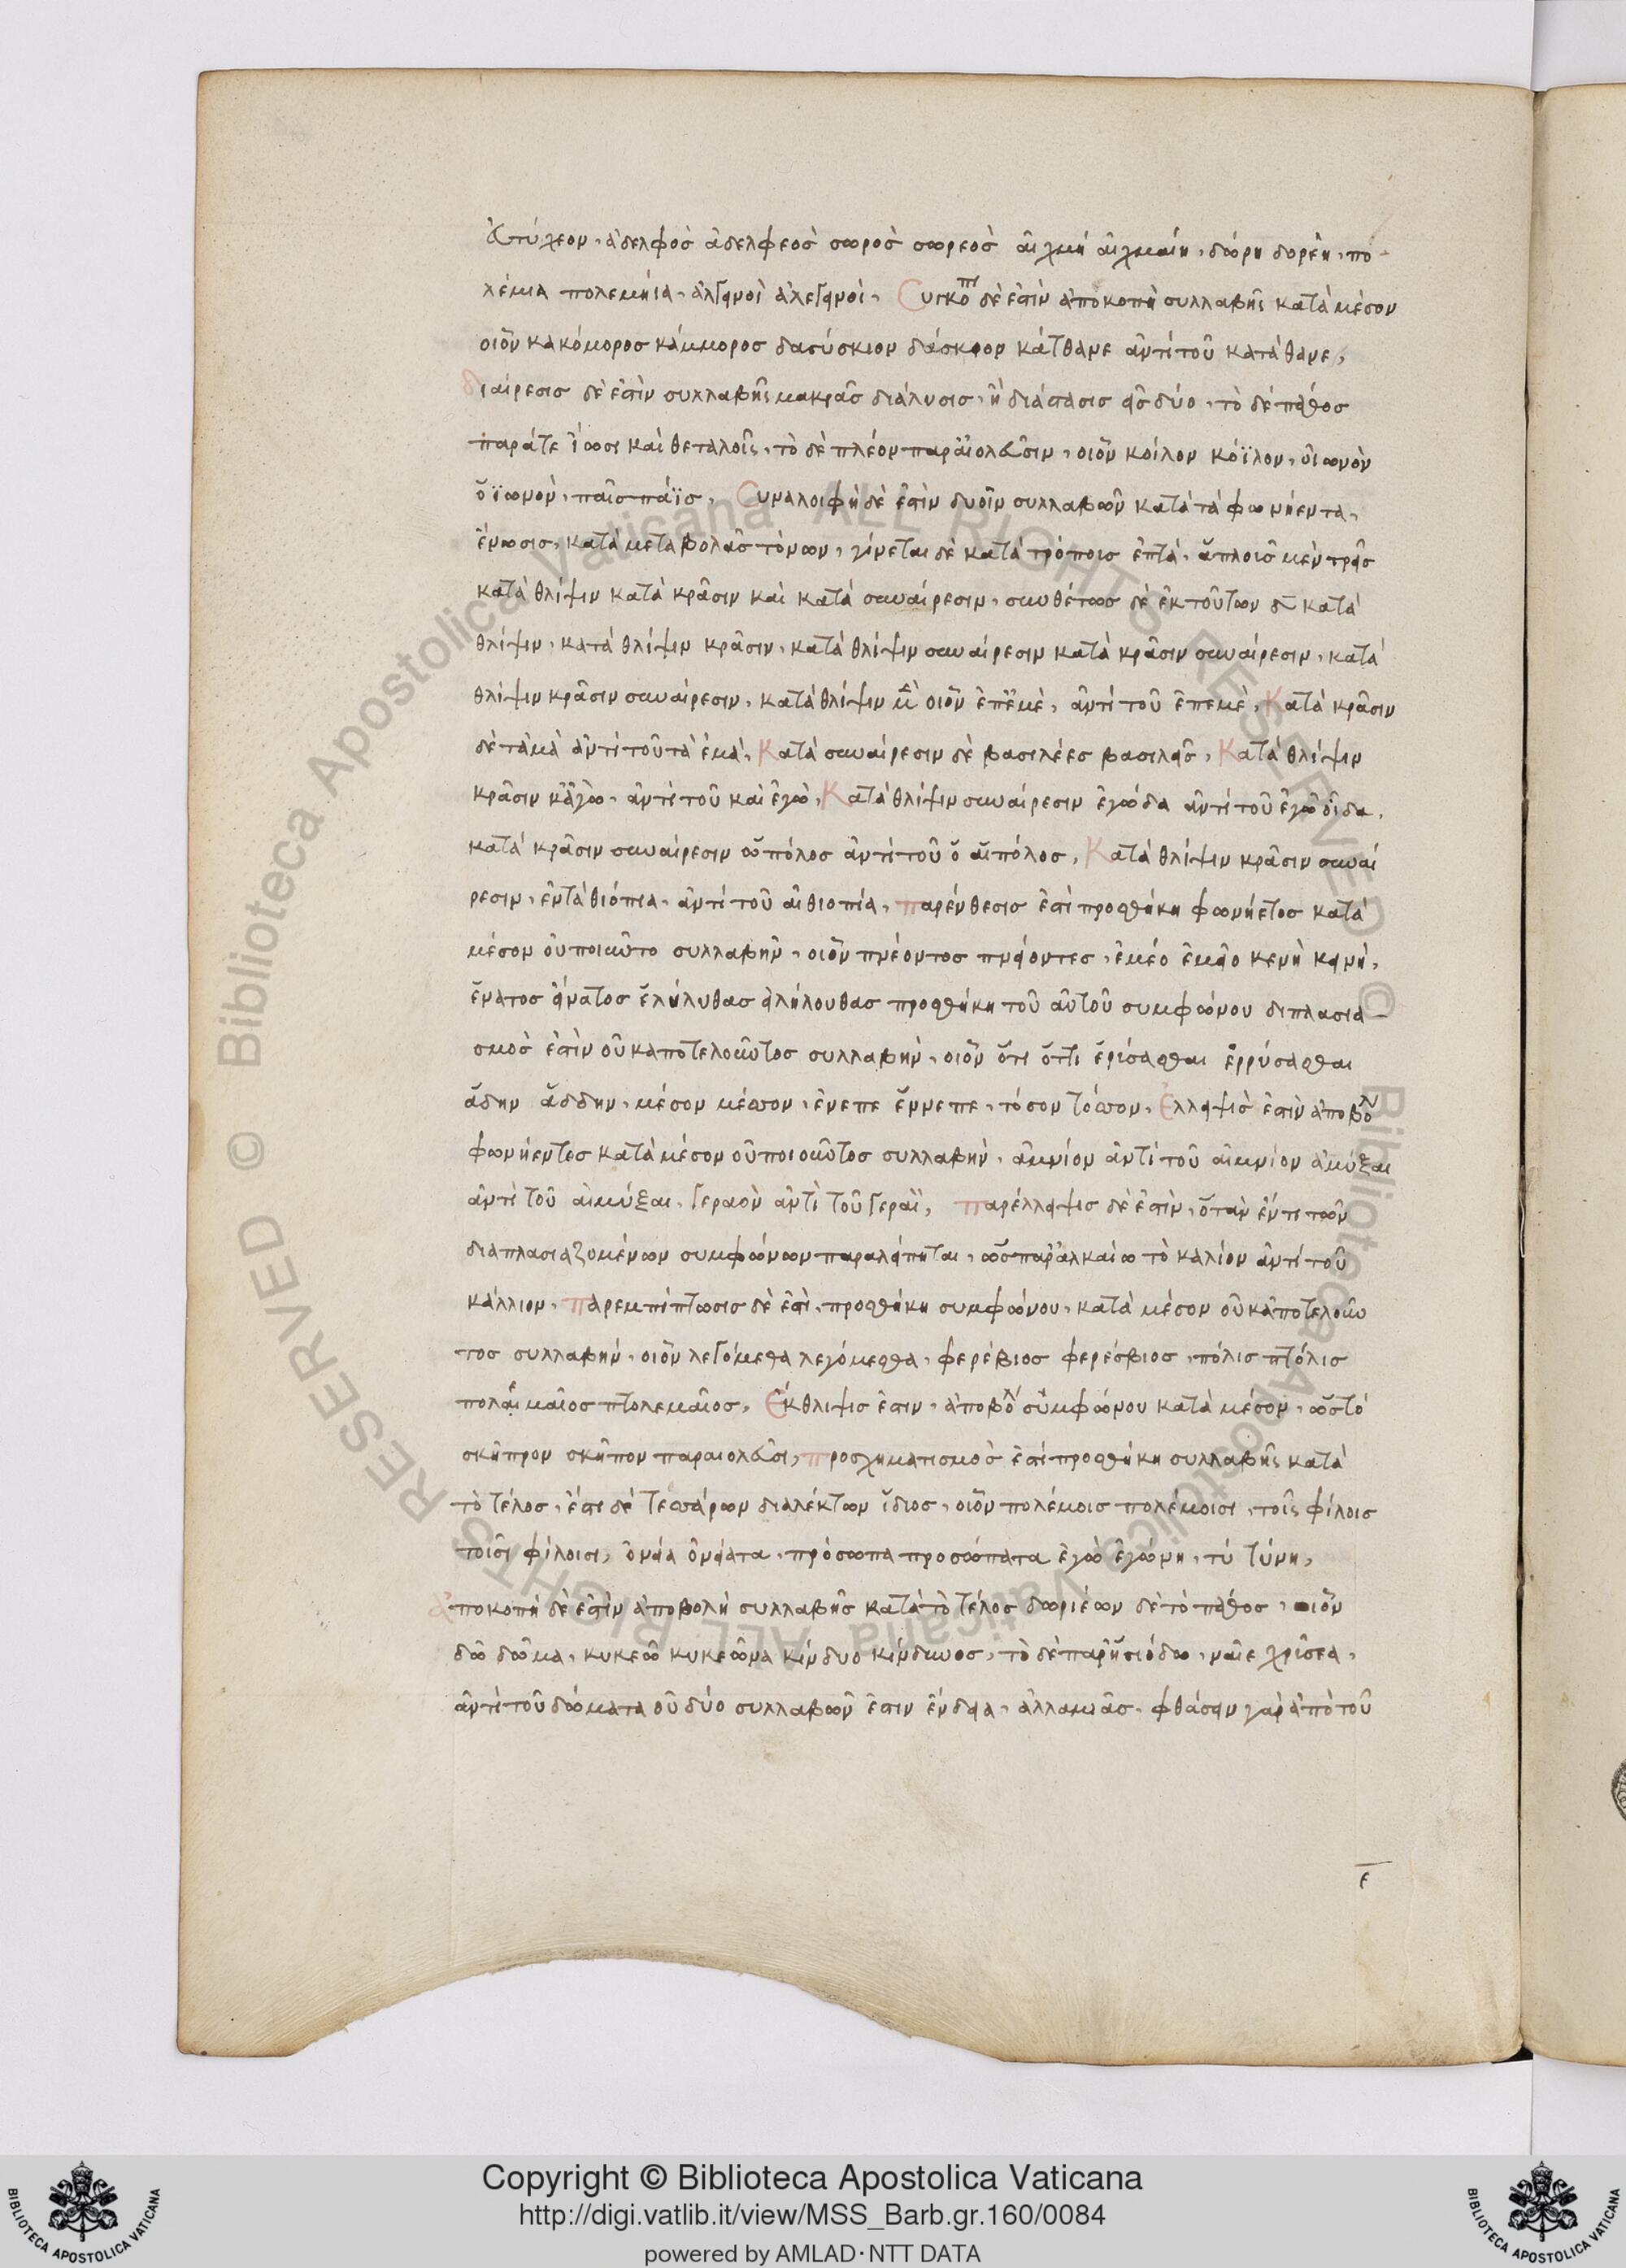 εὐτύχεον, ἀδελφὸς ἀδελφεὸς σωρὸς σωρεὸς αἰχμὴ αἰχμαίη, δώρη δορέη, πο-
λέμια πολεμήια, ἀλγηνοὶ ἀλεγηνοί, Συγκοπὴ δὲ ἐστὶν ἀποκοπὴ συλλαβῆς κατὰ μέσον
οἷον κακόμορος κάμμορος δασύσκιον δάσκιον κάτθανε ἀντὶ τοῦ κατάθανε,
διαίρεσις δὲ ἐστὶν συλλαβῆς μακρᾶς διάλυσις, ἢ διάστασις εἰς δύο, τὸ δὲ πάθος
παρά τε ἴωσι καὶ θεταλοῖς, τὸ δὲ πλέον παρ' αἰολεῦσιν, οἷον κοίλον κόϊλον, οἰωνὸν
ὀϊωνὸν, παῖς πάϊς, Συναλοιφὴ δὲ ἐστὶν δυοῖν συλλαβῶν κατὰ τὰ φωνήεντα,
ἕνωσις, κατὰ μεταβολὰς τόνων, γίνεται δὲ κατὰ τρόποις ἑπτά, ἁπλοις μὲν τρεῖς
κατὰ θλίψιν κατὰ κρᾶσιν καὶ κατὰ συναίρεσιν, συνθέτως δὲ ἐκ τούτων δ̄ κατὰ
θλίψιν, κατὰ θλίψιν κρᾶσιν, κατὰ θλίψιν συναίρεσιν κατὰ κρᾶσιν συναίρεσιν, κατὰ
θλίψιν κρᾶσιν συναίρεσιν, κατὰ θλίψιν μὲν οἷον ἐπ' ἐμὲ, ἀντὶ τοῦ ἐπεμὲ, Κατὰ κρᾶσιν
δὲ τἀμὰ ἀντὶ τοῦ τὰ ἐμά, Κατὰ συναίρεσιν δὲ βασιλέες βασιλεῖς, Κατὰ θλίψιν
κρᾶσιν κἀγὼ, ἀντὶ τοῦ καὶ ἐγὼ, Κατὰ θλίψιν συναίρεσιν ἐγώδα ἀντὶ τοῦ ἐγὼ οἶδα,
κατὰ κρᾶσιν συναίρεσιν ωπόλος ἀντὶ τοῦ ὁ αἰπόλος, Κατὰ θλίψιν κρᾶσιν συναί
ρεσιν, ἐν τἀθιόπια, ἀντὶ τοῦ αἰθιοπία, παρένθεσις ἐστὶ προσθήκη φωνήετος κατὰ
μέσον οὐ ποιοῦντο συλλαβὴν, οἷον πνέοντος πνείοντες, ἐμέο ἐμεῖο κενὴ κεινή,
ἔνατος εἴνατος ἐλήλυθας εἰλήλουθας προσθήκη τοῦ αὐτοῦ συμφώνου διπλασια-
σμὸς ἐστὶν οὐκ ἀποτελοῦντος συλλαβὴν, οἷον ὅτι ὅττι ἐρύσασθαι ἐρρύσασθαι
ἄδην ἄδδην, μέσον μέσσον, ἔνεπε ἔννεπε, τόσον τόσσον, ἔλλειψις ἐστὶν ἀποβολ
φωνήεντες κατὰ μέσον οὐ ποιοῦντος συλλαβὴν, ἀμνίον ἀντὶ τοῦ αἰμνίον ἀμύξαι
ἀντὶ τοῦ αἰμύξαι, γεραὸν ἀντὶ τοῦ γεραϊ, παρέλλειψις δὲ ἐστὶν, ὅταν ἕν τι τῶν
διαπλασιαζομένων συμφώνων παραλείπηται, ὡς παρ' ἀλκαίω τὸ καλίον ἀντὶ τοῦ
κάλλιον, παρεμπίπτωσις δὲ ἐστὶ, προσθήκη συμφώνου, κατὰ μέσον οὐκ ἀποτελοῦν
τος συλλαβὴν, οἷον λεγόμεθα λεγόμεσθα, φερέβιος φερέσβιος, πόλις πτόλις
πολεμαῖος πτολεμαῖος, Ἔκθλιψις ἐστιν, ἀποβολὴ συμφώνου κατὰ μέσον, ὡς τὸ
σκῆπρον σκῆπον παραιολεῦσι, προσχηματισμὸς ἐστὶ προσθήκη συλλαβῆς κατὰ
τὸ τέλος, ἔστι δὲ τεσσάρων διαλέκτων ἴδιος, οἷον πολέμοις πολέμοισι, τοῖς φίλοις
τοῖσι φίλοισι, ὀνεία ὀνείατα, πρόσωπα προσώπατα ἐγὼ ἐγώνη, τύ τύνη,
ἀποκοπὴ δὲ ἐστὶν ἀποβολὴ συλλαβῆς κατὰ τὸ τέλος δωριέων δὲ τὸ πάθος, οἷον
δῶ δῶμα, κυκεῶ κυκεῶνα κίνδυο κίνδυνος, τὸ δὲ παρ' ἡσιόδω, ναῖε χρίσεα,
ἀντὶ τοῦ δώματα οὐ δύο συλλαβῶν ἐστιν ἔνδεια, ἀλλαμιᾶς, φθάσειν γὰρ ἀπὸ τοῦ
ε̄
Copyright © Biblioteca Apostolica Vaticana
http://digi.vatlib.it/view/MSS_Barb.gr.160/0084
powered by AMLAD·NTT DATA